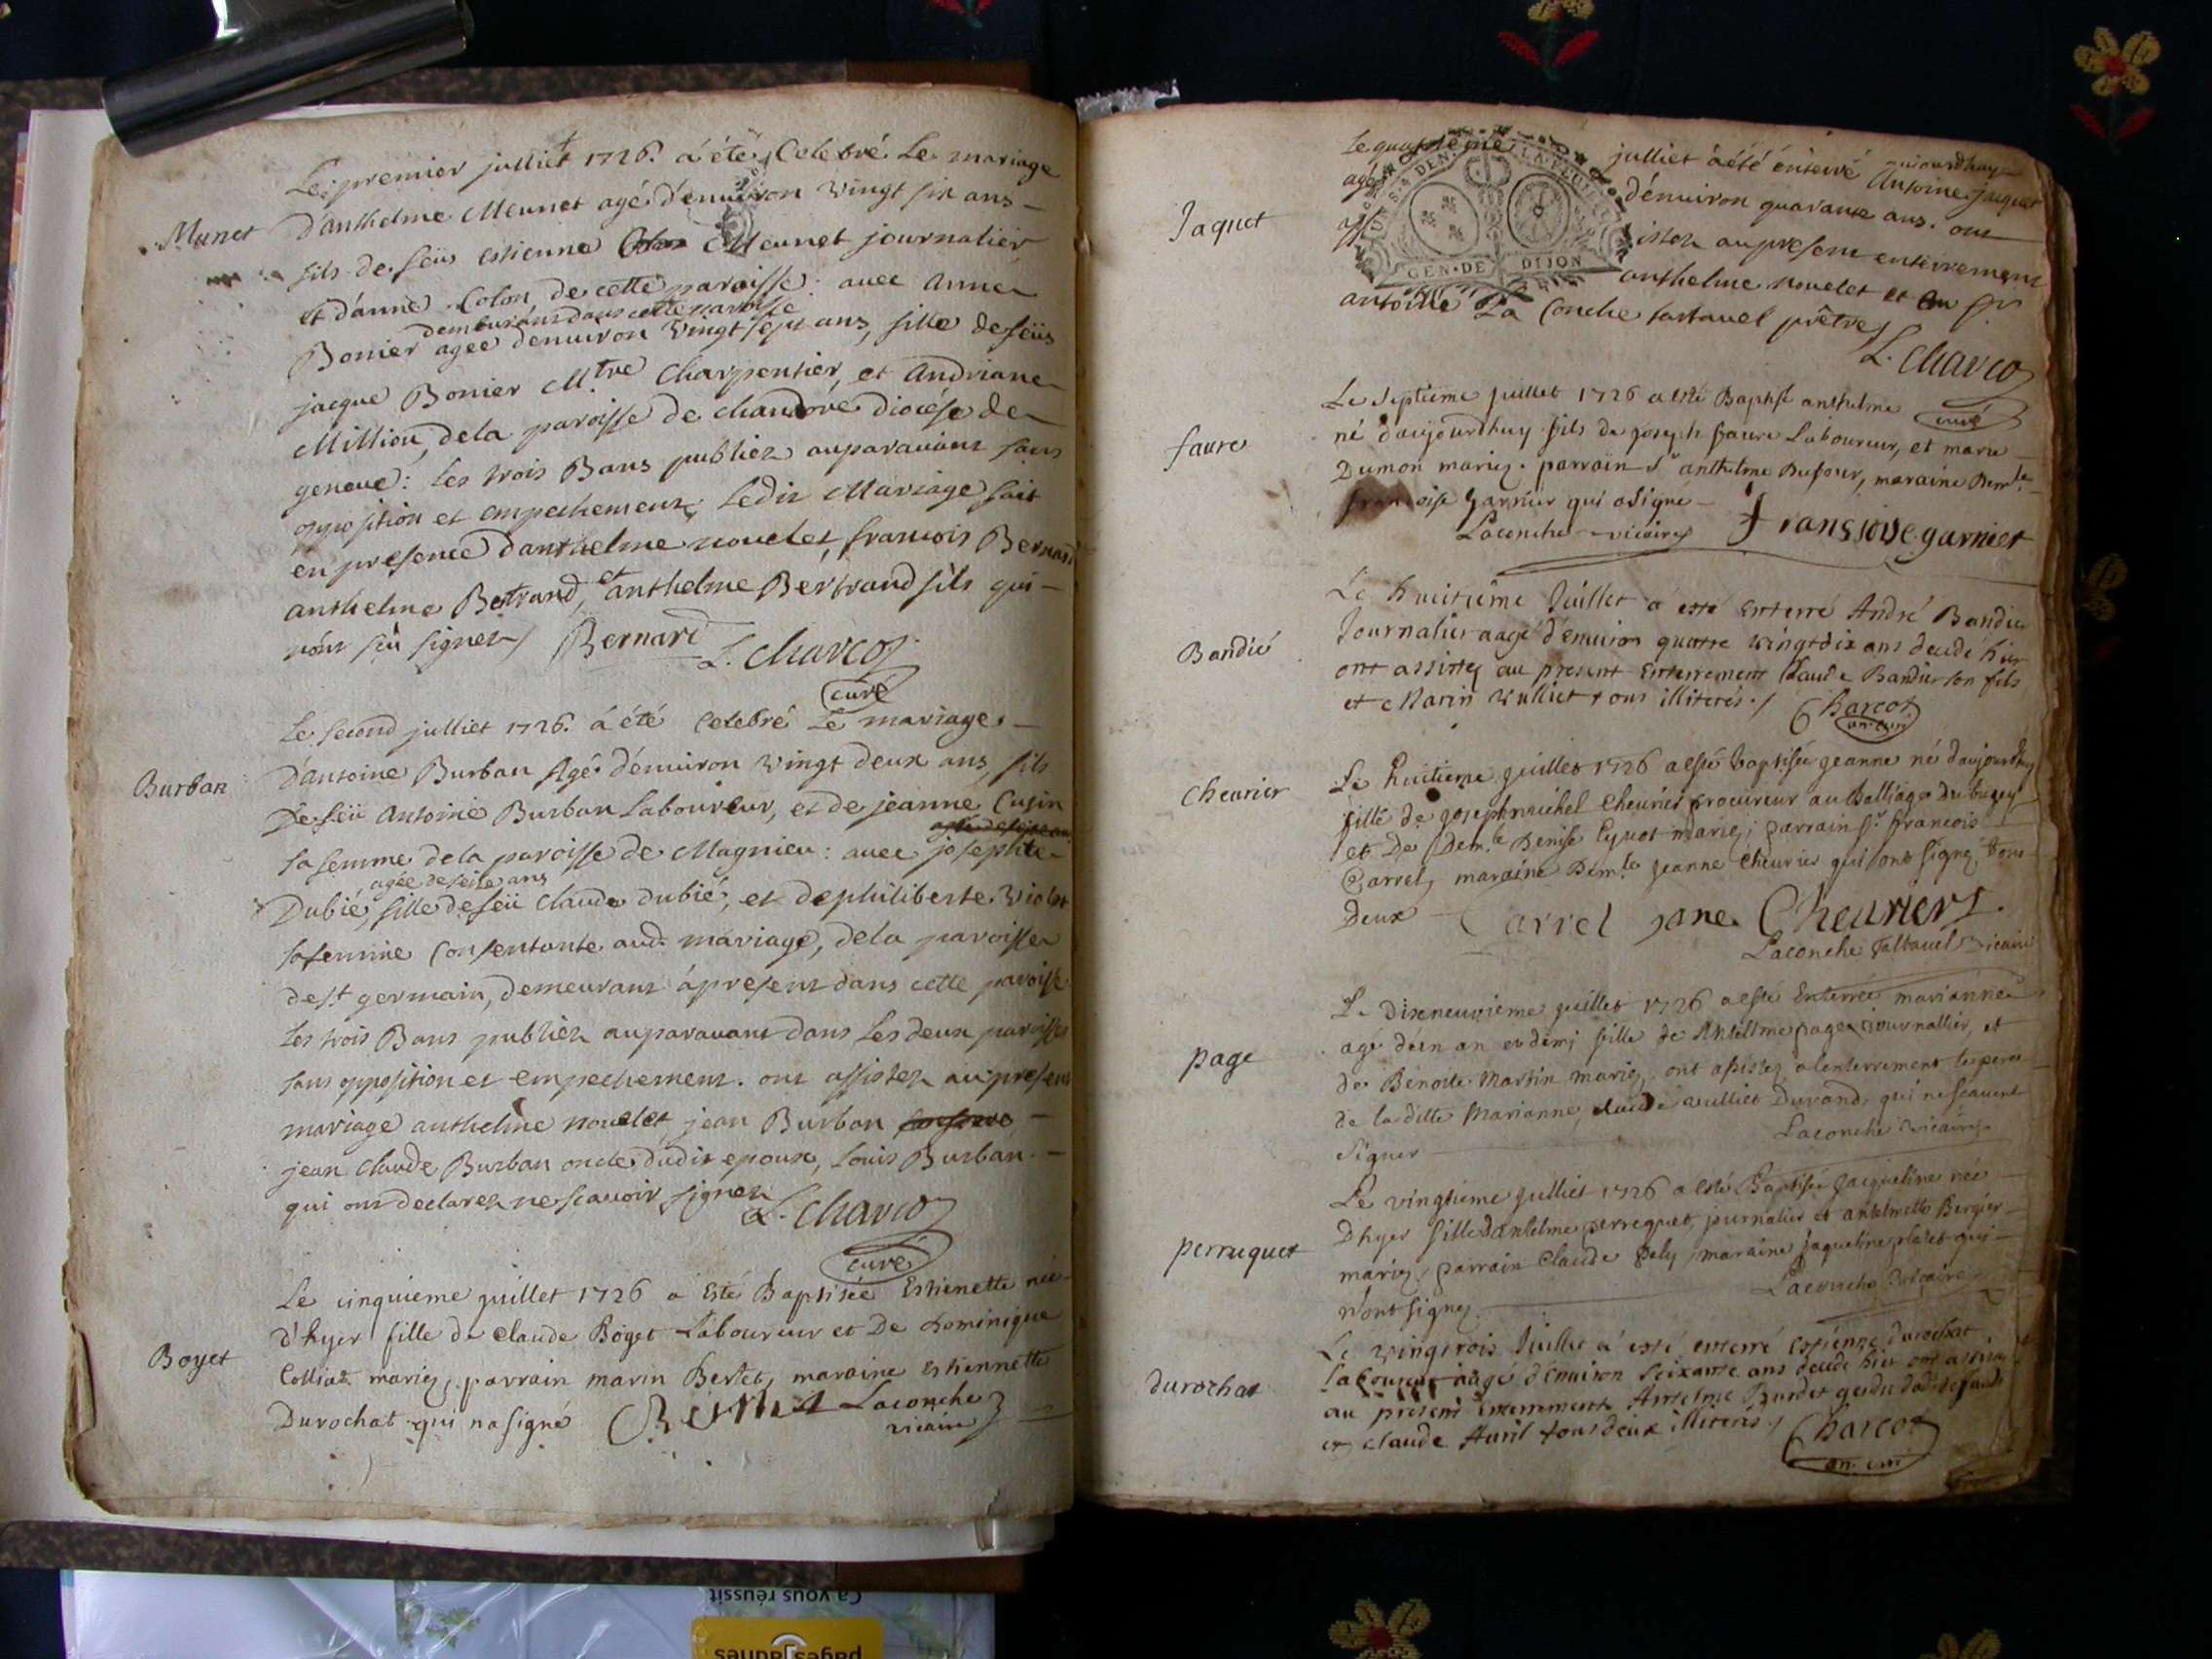 Le premier julliet 1726. a été Celebré Le mariage
Munet
D'anthelme Meunet agé d'enuiron vingt six ans
fils de feüs estienne Meunet journalier
et d'anne Colon, de cette paroisse: auec Anne
demeurant dans cette paroisse
Bonier agée d'enuiron vingt sept ans, fille de feüs
jacque Bonier M.tre Charpentier, et Andriane
Milliou, de la paroisse de chandore diocése de
geneue: les trois Bans publiez auparauant sans
opposition et empechement; Ledit Mariage fait
en presence d'anthelme nouelet, francois Bernard
anthelme Bertrand, et anthelme Bertrand fils qui
n'ont sçu signer Bernard L. Charcot
curé
Le second julliet 1726. á été Celebré Le mariage
Burban
D'antoine Burban Agé d'enuiron vingt deux ans, fils
De feü Antoine Burban Laboureur, et de jeanne Cusin
sa femme de la paroisse de Magnieu: auec josephte
agée de seize ans
Dubié, fille de feü Claude dubié, et de philiberte Violet
sa femme Consentante aud. mariage, de la paroisse
de st germain, demeurant á present dans cette paroisse
Les trois Bans publiez auparauant dans Les deux paroisses
sans opposition et empechement. ont assistez au present
mariage anthelme nouelet jean Burban
jean Claude Burban oncle dudit epoux, Louis Burban
qui ont declarez ne scauoir signer L. Charcot
curé
Le cinquieme juillet 1726 a esté Baptisée Estienette née
d'hyer fille de Claude Boget Laboureur et De Dominique
Boyet
Colliat mariez, parrain marin Bertet, maraine Estiennette
Durochat qui na signé Bertet Laconche
vicaire
Le quatrième julliet à été enterré aujourdhuy Antoine jaquet
Jaquet
agé d'enuiron quarante ans. ont
assistez au present enterrement
GEN·DE DIJON
anthelme nouelet et Sr
antoine La Conche tartauel prêtre
L. Charcot
curé
Le Septieme juillet 1726 a esté Baptisé anthelme
faure
né d'aujourdhuy fils de joseph faure Laboureur, et marie
Dumon mariez. parrain Sr anthelme Dufour, maraine Dem.le
francoise garnier qui a signé
Laconche vicaire fransoise garnier
Le huitième Juillet a esté enterré André Bandié
Bandié
Journalier aagé d'enuiron quatre vingt dix ans decedé hier
ont assistez au present Enterrement Claude Bandier son fils
et Marin Vulliet tous illiterés. Charcot
an. curé
Le huitieme juillet 1726 a esté baptisée jeanne né d'aujourdhuy
cheurier
fille de joseph michel cheurier procureur au balliage du bugey
et De Dem.le Denise Cyuot mariez; parrain Sr francois
Carrel, maraine Dem.le jeanne cheurier qui ont signez tous
Deux Carrel jane Cheurier
Laconche Taltauel Vicaire
Le Dixneuvieme juillet 1726 a esté Enterrée marianne
page
agé d'un an et demi fille de Antelme page journallier, et
de Benoite Martin mariez, ont assistez a lenterrement le pere
de la ditte Marianne, Claude vulliet Durand, qui ne scauent
signer Laconche Vicaire
Le vingtieme julliet 1726 a esté Baptisée jaqueline née
Dhyer fille dantelme perrequet, journalier et antelmette Bergier
perruquet
mariez, parrain Claude Pely, maraine jaqueline platet qui
n'ont signez Laconche Vicaire
Le vingtrois Juillet a esté enterré Estienne durochat
durochat
Laboureur aagé d'enuiron soixante ans decedé hier ont assisté
au present Enterrement Antelme Burdet gendre dud. defunt
et Claude Auril tous deux illiteres. Charcot
an. curé
Ca vous réussit
pagesjaunes